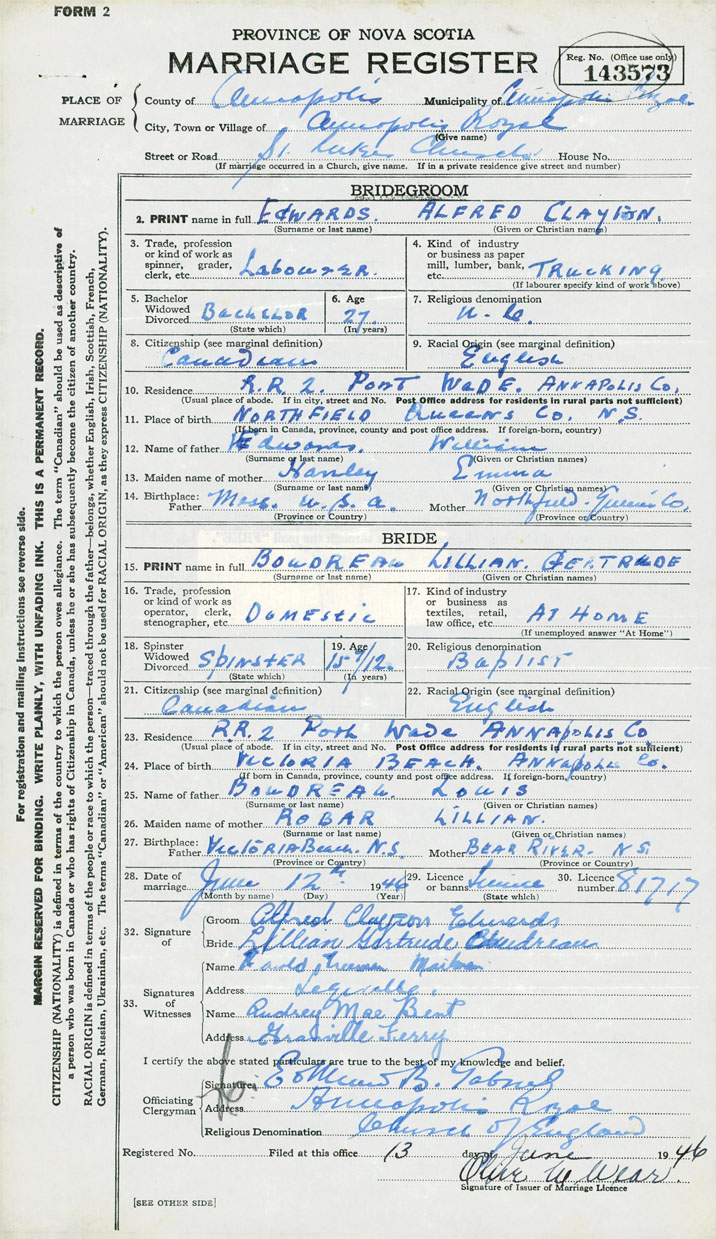 FORM 2
PROVINCE OF NOVA SCOTIA
MARRIAGE REGISTER
Reg. No. (Office use only)
143573
PLACE OF MARRIAGE
County of Annapolis Municipality of Annapolis Royal
City, Town or Village of Annapolis Royal
(Give name)
Street or Road St. Lukes Church House No.
(If marriage occurred in a Church, give name. If in a private residence give street and number)
BRIDEGROOM
2. PRINT name in full EDWARDS. ALFRED CLAYTON.
(Surname or last name) (Given or Christian names)
3. Trade, profession or kind of work as spinner, grader, clerk, etc. LABOURER.
4. Kind of industry or business as paper mill, lumber, bank, etc. TRUCKING
(If labourer specify kind of work above)
5. Bachelor Widowed Divorced BACHELOR
(State which)
6. Age 27.
(In years)
7. Religious denomination U. C.
8. Citizenship (see marginal definition) Canadian
9. Racial Origin (see marginal definition) English
10. Residence R.R. 2. PORT WADE. ANNAPOLIS CO.
(Usual place of abode. If in city, street and No. Post Office address for residents in rural parts not sufficient)
11. Place of birth NORTHFIELD QUEENS CO. N.S.
(If born in Canada, province, county and post office address. If foreign-born, country)
12. Name of father Edwards. William
(Surname or last name) (Given or Christian names)
13. Maiden name of mother Hanley Emma
(Surname or last name) (Given or Christian names)
14. Birthplace: Father Mass. U.S.A. Mother Northfield - Queens Co.
(Province or Country) (Province or Country)
BRIDE
15. PRINT name in full BOUDREAU LILLIAN. GERTRUDE
(Surname or last name) (Given or Christian names)
16. Trade, profession or kind of work as operator, clerk, stenographer, etc. DOMESTIC
17. Kind of industry or business as textiles, retail, law office, etc. AT HOME
(If unemployed answer "At Home")
18. Spinster Widowed Divorced SPINSTER
(State which)
19. Age 15 /12.
(In years)
20. Religious denomination BAPTIST
21. Citizenship (see marginal definition) Canadian
22. Racial Origin (see marginal definition) English
23. Residence R.R.2 Port Wade ANNAPOLIS CO
(Usual place of abode. If in city, street and No. Post Office address for residents in rural parts not sufficient)
24. Place of birth VICTORIA BEACH. ANNAPOLIS CO.
(If born in Canada, province, county and post office address. If foreign-born, country)
25. Name of father BOUDREAU. LOUIS
(Surname or last name) (Given or Christian names)
26. Maiden name of mother ROBAR LILLIAN.
(Surname or last name) (Given or Christian names)
27. Birthplace: Father VICTORIA Beach. N.S. Mother BEAR RIVER. N.S.
(Province or Country) (Province or Country)
28. Date of marriage June 12th 1946
(Month by name) (Day) (Year)
29. Licence or banns
(State which)
30. Licence number 81717
32. Signature of
Groom Alfred Clayton Edwards
Bride Lillian Gertrude Boudreau
33. Signatures of Witnesses
Name
Address
Name Audrey Mae Bent
Address Granville Ferry
I certify the above stated particulars are true to the best of my knowledge and belief.
Officiating Clergyman
Signature B.
Address Annapolis Royal
Religious Denomination Church of England
Registered No. Filed at this office 13 day of June 1946
Signature of Issuer of Marriage Licence
[SEE OTHER SIDE]
For registration and mailing instructions see reverse side.
MARGIN RESERVED FOR BINDING. WRITE PLAINLY, WITH UNFADING INK. THIS IS A PERMANENT RECORD.
CITIZENSHIP (NATIONALITY) is defined in terms of the country to which the person owes allegiance. The term "Canadian" should be used as descriptive of
a person who was born in Canada or who has rights of Citizenship in Canada, unless he or she has subsequently become the citizen of another country.
RACIAL ORIGIN is defined in terms of the people or race to which the person—traced through the father—belongs, whether English, Irish, Scottish, French,
German, Russian, Ukrainian, etc. The terms "Canadian" or "American" should not be used for RACIAL ORIGIN, as they express CITIZENSHIP (NATIONALITY).